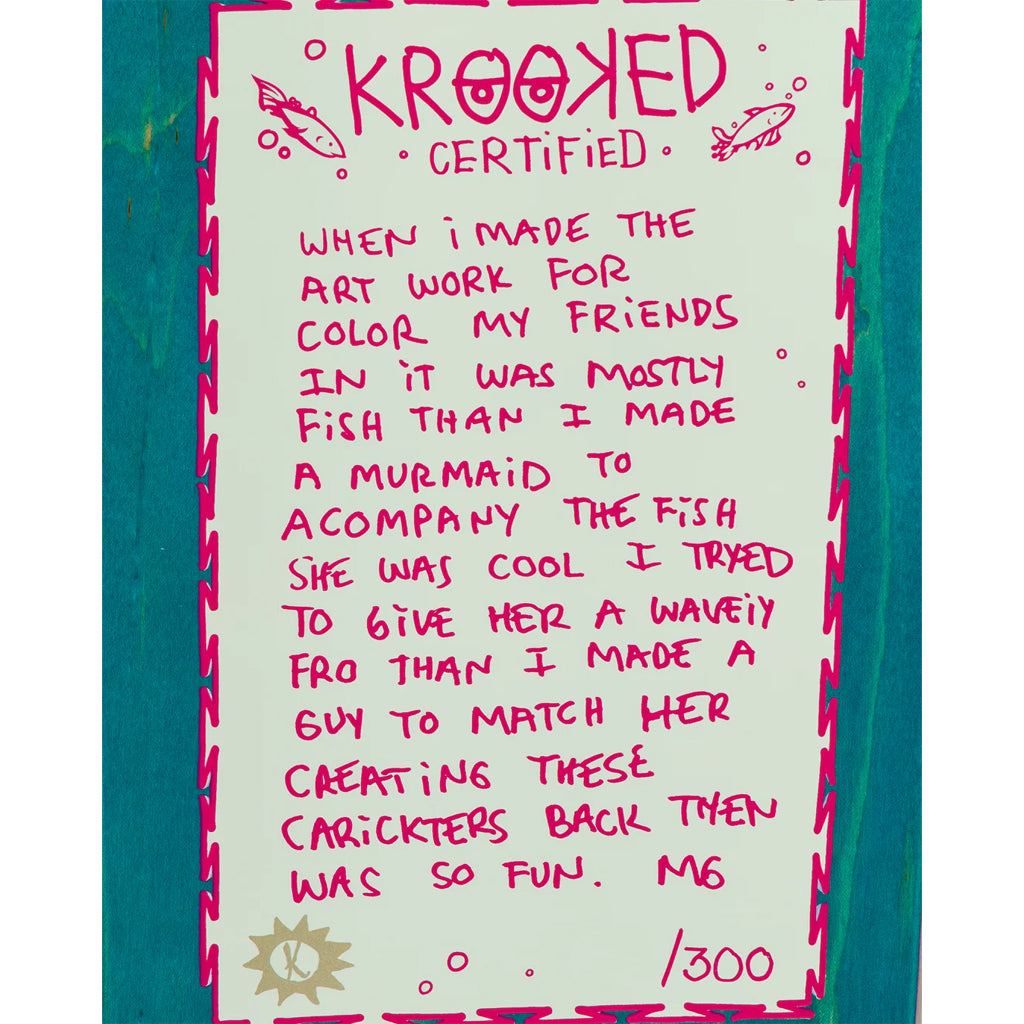 KROOKED
• CERTiFiED •
WHEN i MADE THE
ART WORK FOR
COLOR MY FRiENDS
IN iT WAS MOSTLY
FiSH THAN I MADE
A MURMAiD TO
ACOMPANY THE FiSH
SHE WAS COOL I TRYED
TO GiVE HER A WAVEiY
FRO THAN I MADE A
GUY TO MATCH HER
CREATiNG THESE
CARiCKTERS BACK THEN
WAS SO FUN. MG
K
/300